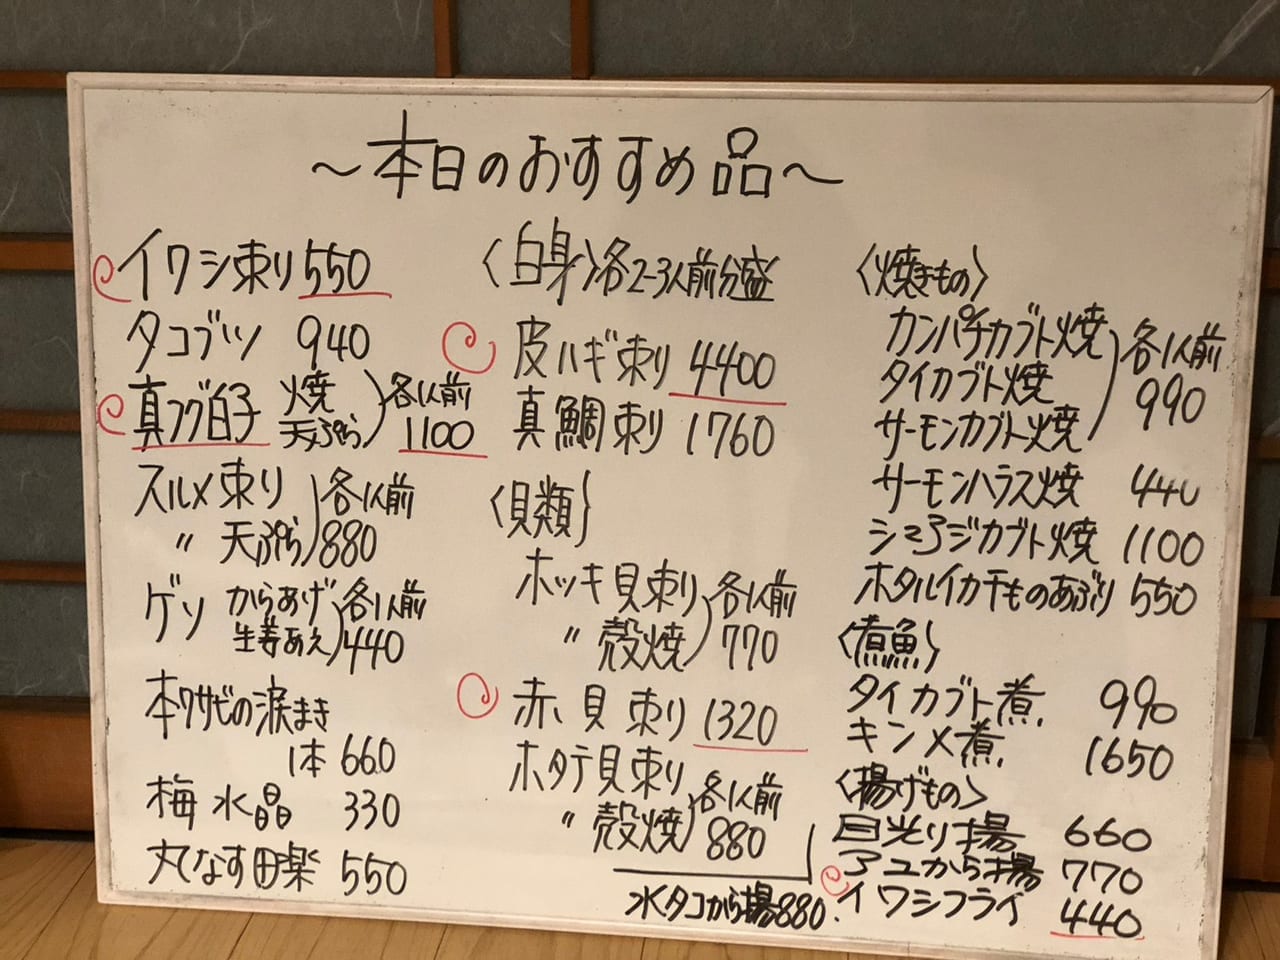 ～本日のおすすめ品～
イワシ刺り 550
タコブツ 940
真フグ白子 焼 天ぷら 各1人前 1100
スルメ刺り 各1人前
〃 天ぷら 880
ゲソ からあげ 各1人前
生姜あえ 440
本ワサビの涙まき
1本 660
梅水晶 330
丸なす田楽 550
〈白身〉各2-3人前分盛
皮ハギ刺り 4400
真鯛刺り 1760
〈貝類〉
ホッキ貝刺り 各1人前
〃 殻焼 770
赤貝刺り 1320
ホタテ貝刺り 各1人前
〃 殻焼 880
水タコから揚 880.
〈焼きもの〉
カンパチカブト焼 各1人前
タイカブト焼 990
サーモンカブト焼
サーモンハラス焼 440
シマアジカブト焼 1100
ホタルイカ干ものあぶり 550
〈煮魚〉
タイカブト煮 990
キンメ煮 1650
〈揚げもの〉
目光り揚 660
アユから揚 770
イワシフライ 440